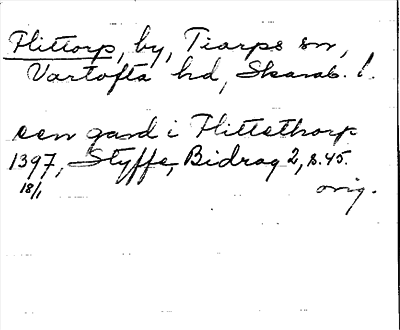 Flittorp, by, Tiarps sn,
Vartofta hd, Skarab. l.
een gard i Flittethorp
1397, Styffe, Bidrag 2, s. 45.
18/1 orig.